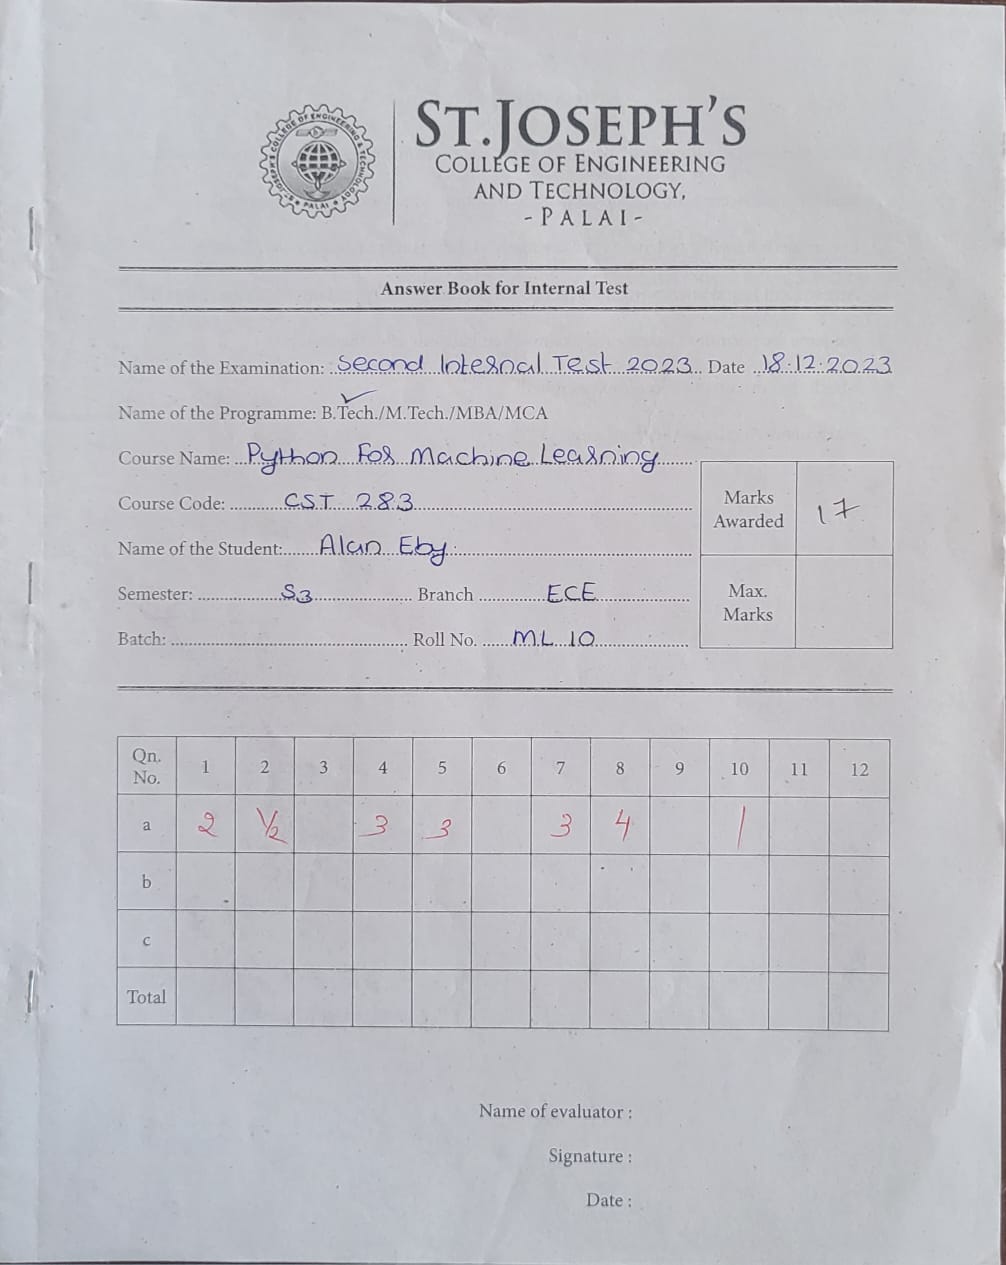 ST.JOSEPH'S
COLLEGE OF ENGINEERING
AND TECHNOLOGY,
- PALAI -
Answer Book for Internal Test
Name of the Examination: Second Internal Test 2023 Date 18.12.2023
Name of the Programme: B.Tech./M.Tech./MBA/MCA
Course Name: Python For Machine Learning
Course Code: CST 283
Marks Awarded 17
Name of the Student: Alan Eby
Semester: S3 Branch ECE
Max. Marks
Batch: Roll No. ML 10
Qn. No. 1 2 3 4 5 6 7 8 9 10 11 12
a 2 1/2 3 3 3 4 1
b
c
Total
Name of evaluator :
Signature :
Date :